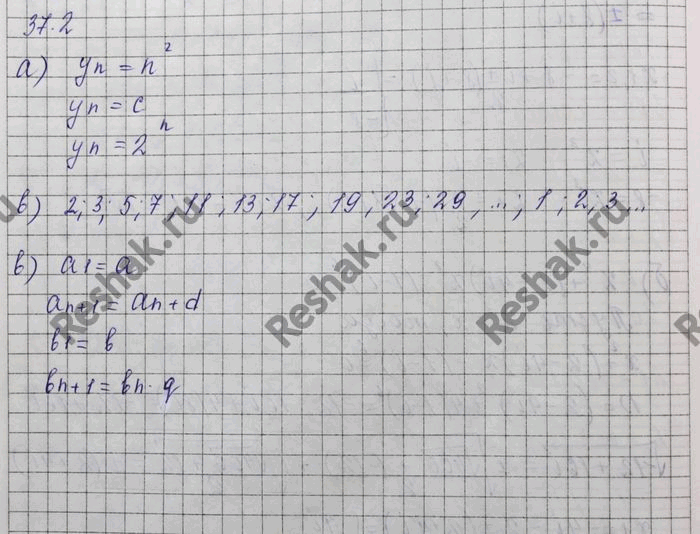 37.2
а) yn = n²
yn = c
yn = 2ⁿ
в) 2; 3; 5; 7; 11; 13; 17; 19; 23; 29, ...; 1; 2; 3...
в) a1 = a
an+1 = an + d
b1 = b
bn+1 = bn · q
Reshak.ru
Reshak.ru
Reshak.ru